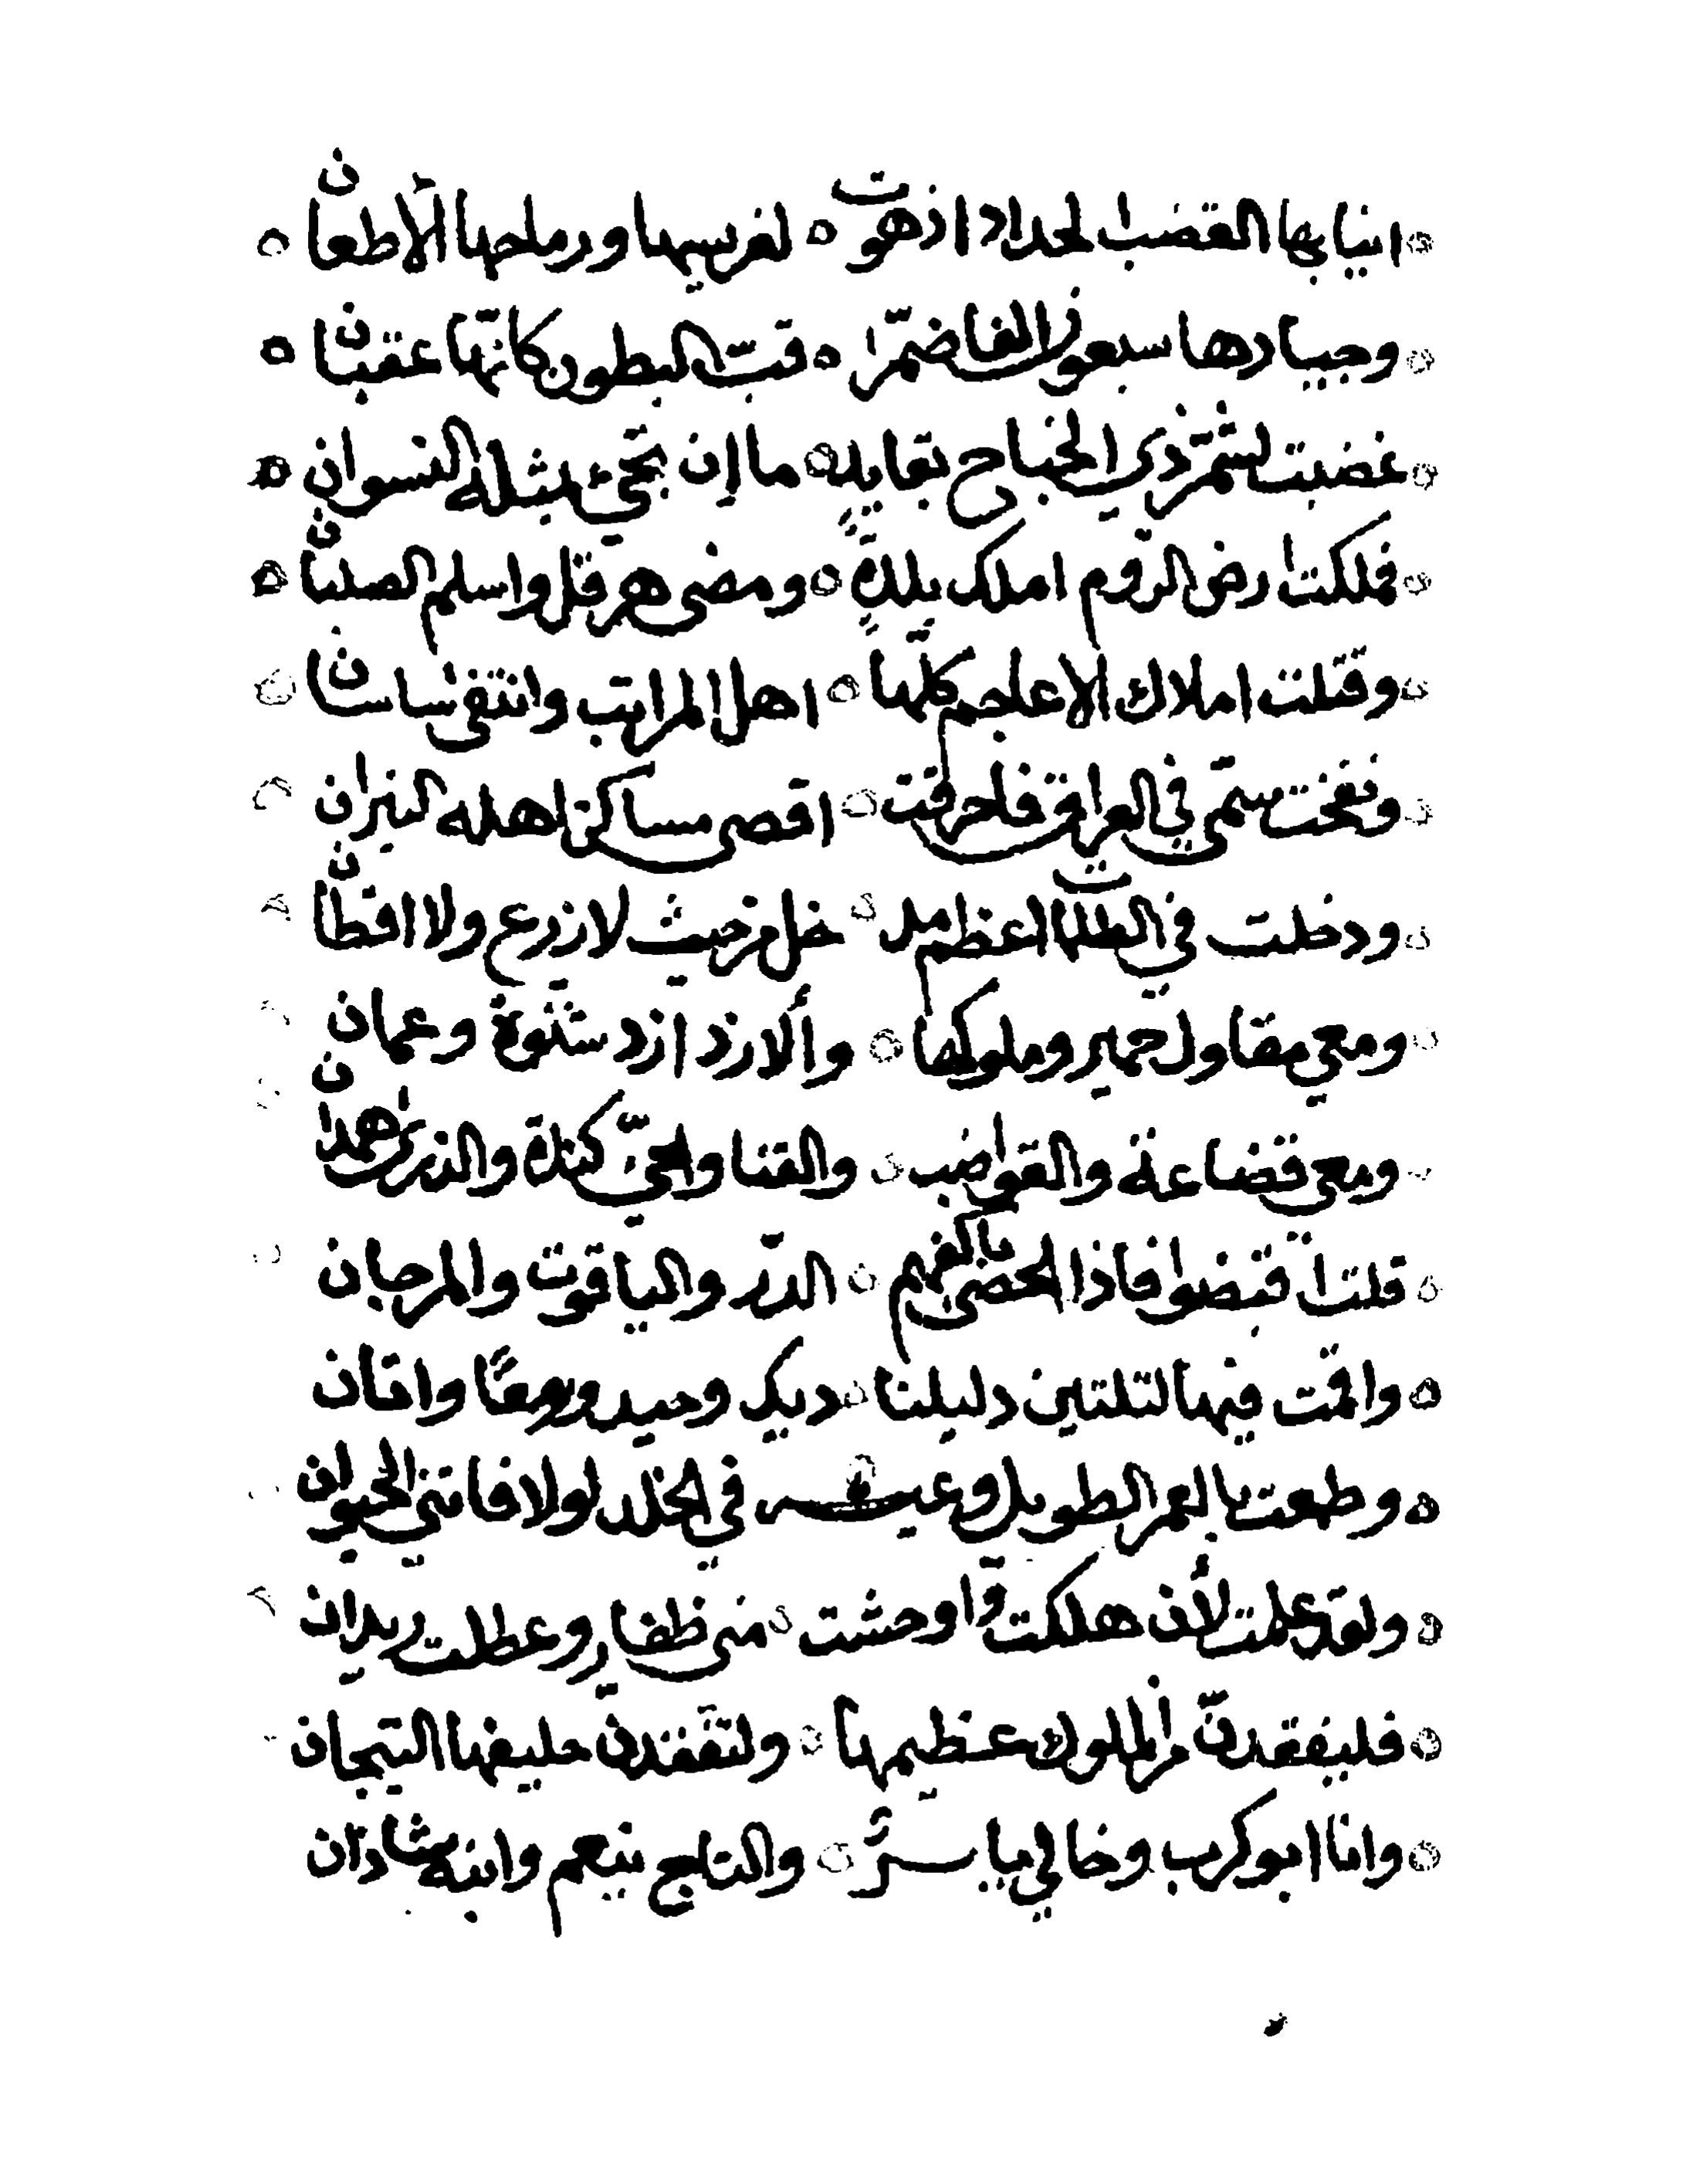 انيابها القضب الحداد اذ هوت لفريسها ورماحها الأطعان
وجيادها سبعون الفا ضمّرا قب البطون كانّها عقبان
غضبت لشمّر ذي الجناح بقابل ما إن تجيء بمثله النسوان
فملكت ارض الروم املك ومضى هرقل واسلم الصلبان
وقتلت املاك الاعاجم كلّها اهل المراتب وانتقى ساسان
ونفخت سمّي في العراق فاحرقت اقصى مساكن اهله النيران
ودخلت في الظلمات اعظم مدخل من حيث لا زرع ولا اقطان
ومعي مقاول حمير وملوكها وألازد ازد شنوة وعمان
ومعي قضاعة والقواضب والقنا والحيّ كندة والذرى همدان
قلت اقبضوا فاذا الحصى باكفهم الدّر والياقوت والمرجان
واقمت فيها لتلتين دليلنا ديك وحيد واتان
وطمعت بالعمر الطويل وعيشة في الخلد لولا فاتني الحيوان
ولقد علمت لأن هلكت واوحشت مني ظفار وعطلت ريدان
فليفقدنّ من الملوك عظيمها ولتفقدن حليفها التيجان
وانا ابو كرب وخالي ياسرٌ والتاج ينعم وابنه شادان